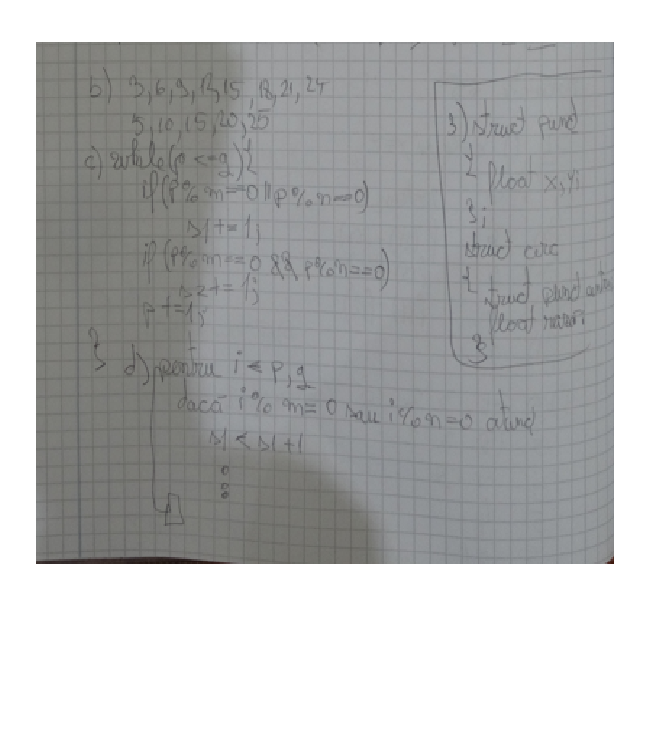 b) 3,6,9,12,15,18,21,24
5,10,15,20,25
c) while(p<=q){
if(p%m==0||p%n==0)
s1+=1;
if(p%m==0 && p%n==0)
s2+=1;
p+=1;
}
d) pentru i← p,q
dacă i%m=0 sau i%n=0 atunci
s1←s1+1
3) struct punct
{
float x,y;
};
struct cerc
{
struct punct
float raza;
}